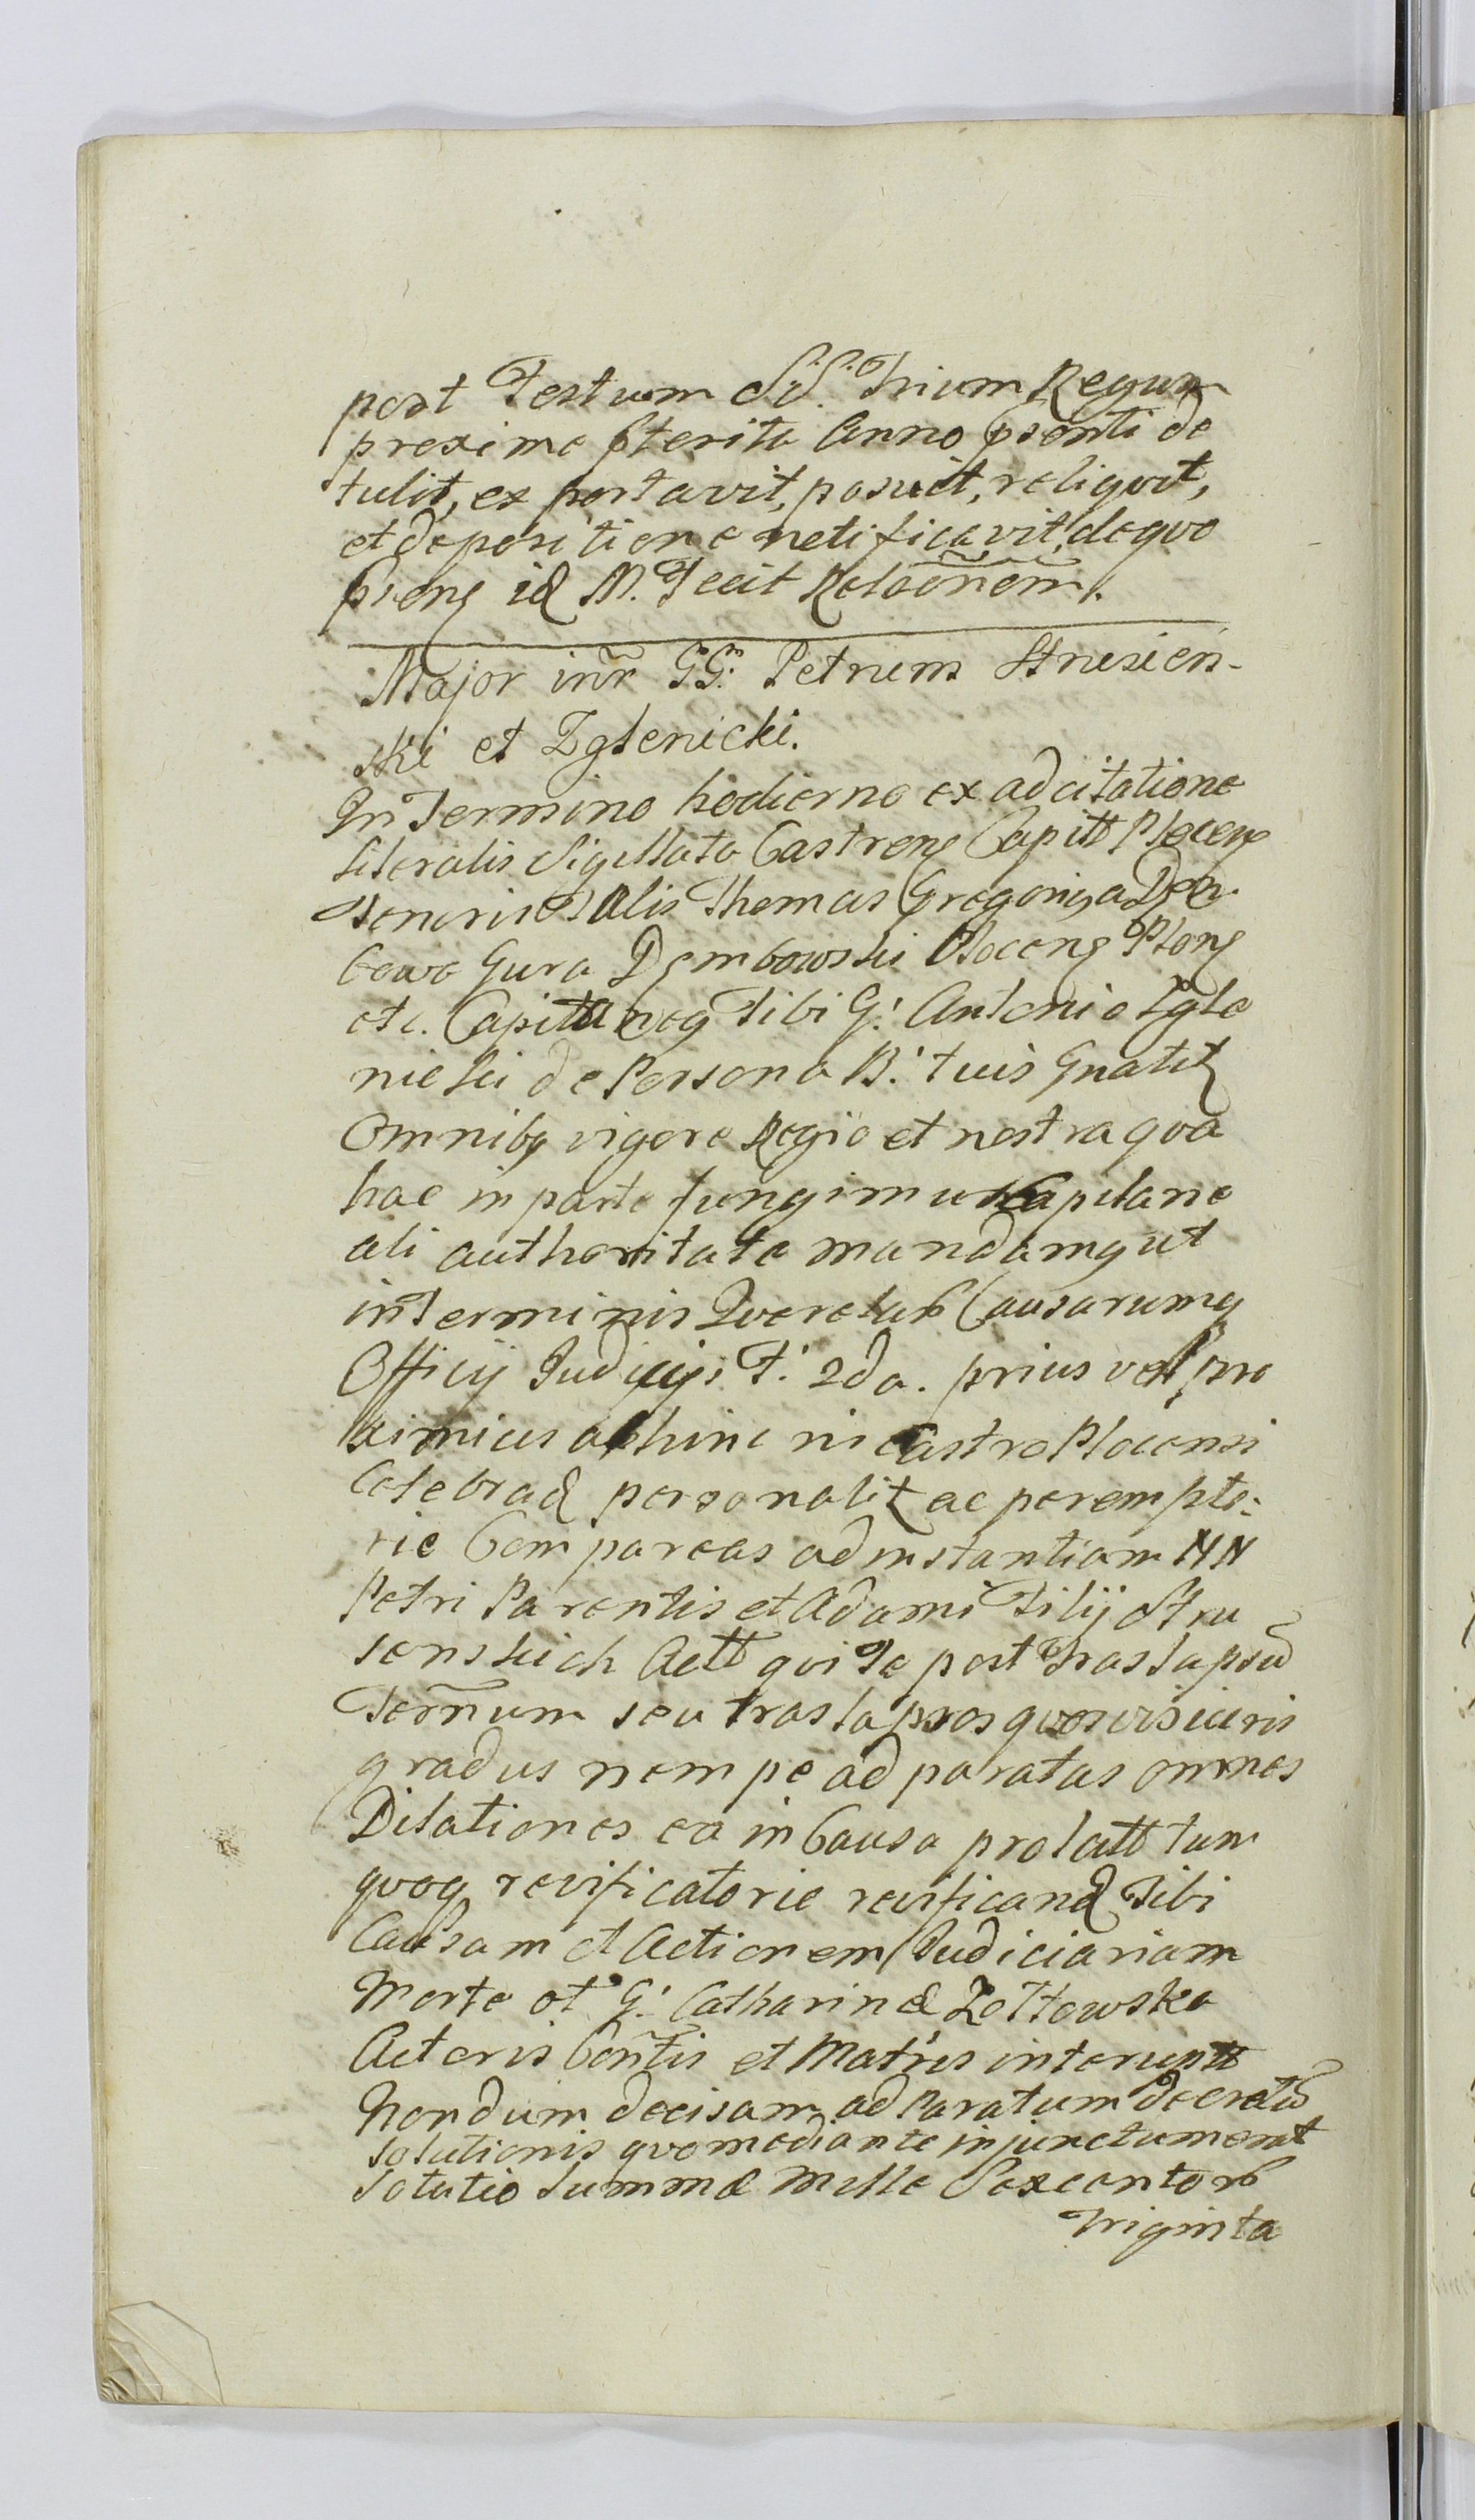 post Festum SS. Trium Regum
proxime pterito Anno psenti de
tulit, ex portavit, posuit, reliquit,
et de positione notificavit, de quo
id M. Fecit Relaõnem.
Major inr̃ GG. Petrum Strusien-
ski et Zglenicki.
In Termino hodierno ex adcitatione
literalis Sigillata Castren Capitt Plocen
tenoris talis Thomas Gregorius a Dem
bowa Gura Dembowski Plocen Plonen
etc. Capitaneg Tibi G. Antonio Zgle
nicki de Persona B. tuis Gnatit
Omnibg vigore Regio et nostra qua
hac in parte fungimur Capitane
ali authoritate mandamg ut
in Terminis Querelar Causarumq
Officij Judicijs F. 2da. prius vel pro
ximius abhinc in Castro Plocensi
Celebrad personalit ac perempto-
rie Compareas ad instantiam NN
Petri Parentis et Adami Filij Stru
senskich Actt qui Te post Traslapsũ
Term̃um seu traslapsos quosvis iuris
gradus nempe ad paratas omnes
Dilationes ea in Causa prolatt tum
quoq revificatorie revificand Tibi
Causam et Actionem Judiciariam
Morte ol G. Catharinæ Zottowska
Actoris Con̄tis et Matris interuptt
Nondum decisam ad Paratum Decretũ
Solutionis quo mediante injunctum erat
Solutio Summæ Mille Sexcentor
Triginta